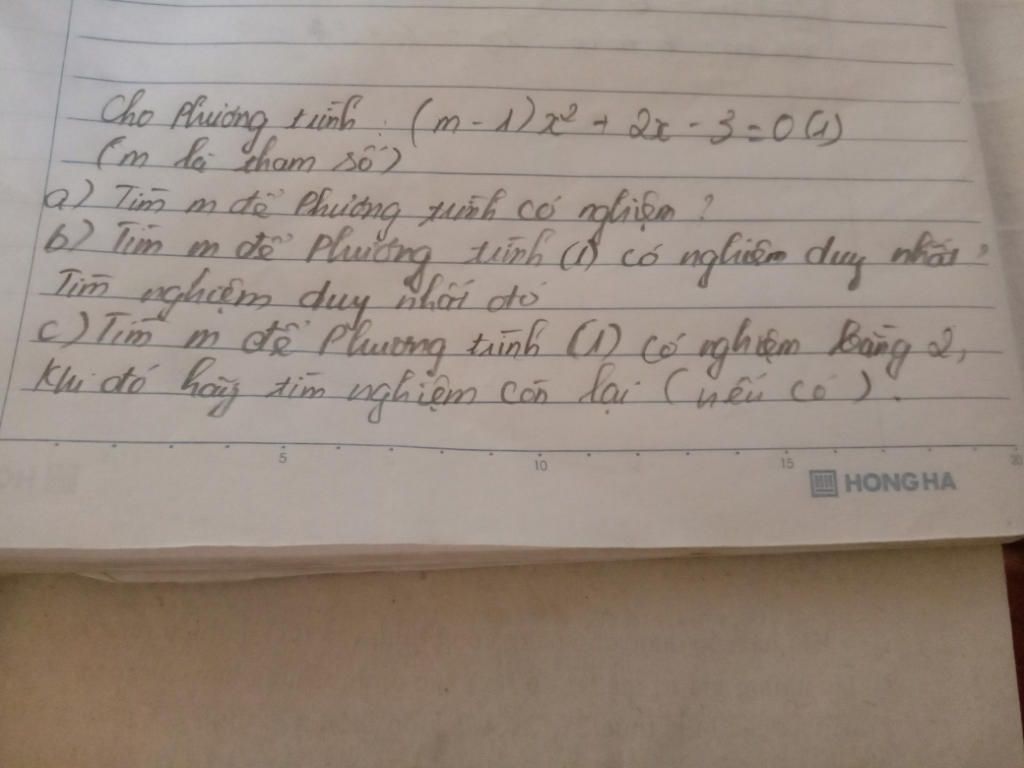 Cho Phương trình : (m - 1)x² + 2x - 3 = 0 (1)
(m là tham số)
a) Tìm m để Phương trình có nghiệm ?
b) Tìm m để Phương trình (1) có nghiệm duy nhất ?
Tìm nghiệm duy nhất đó
c) Tìm m để Phương trình (1) có nghiệm bằng 2,
Khi đó hãy tìm nghiệm còn lại (nếu có).
5 10 15 20
HONG HA